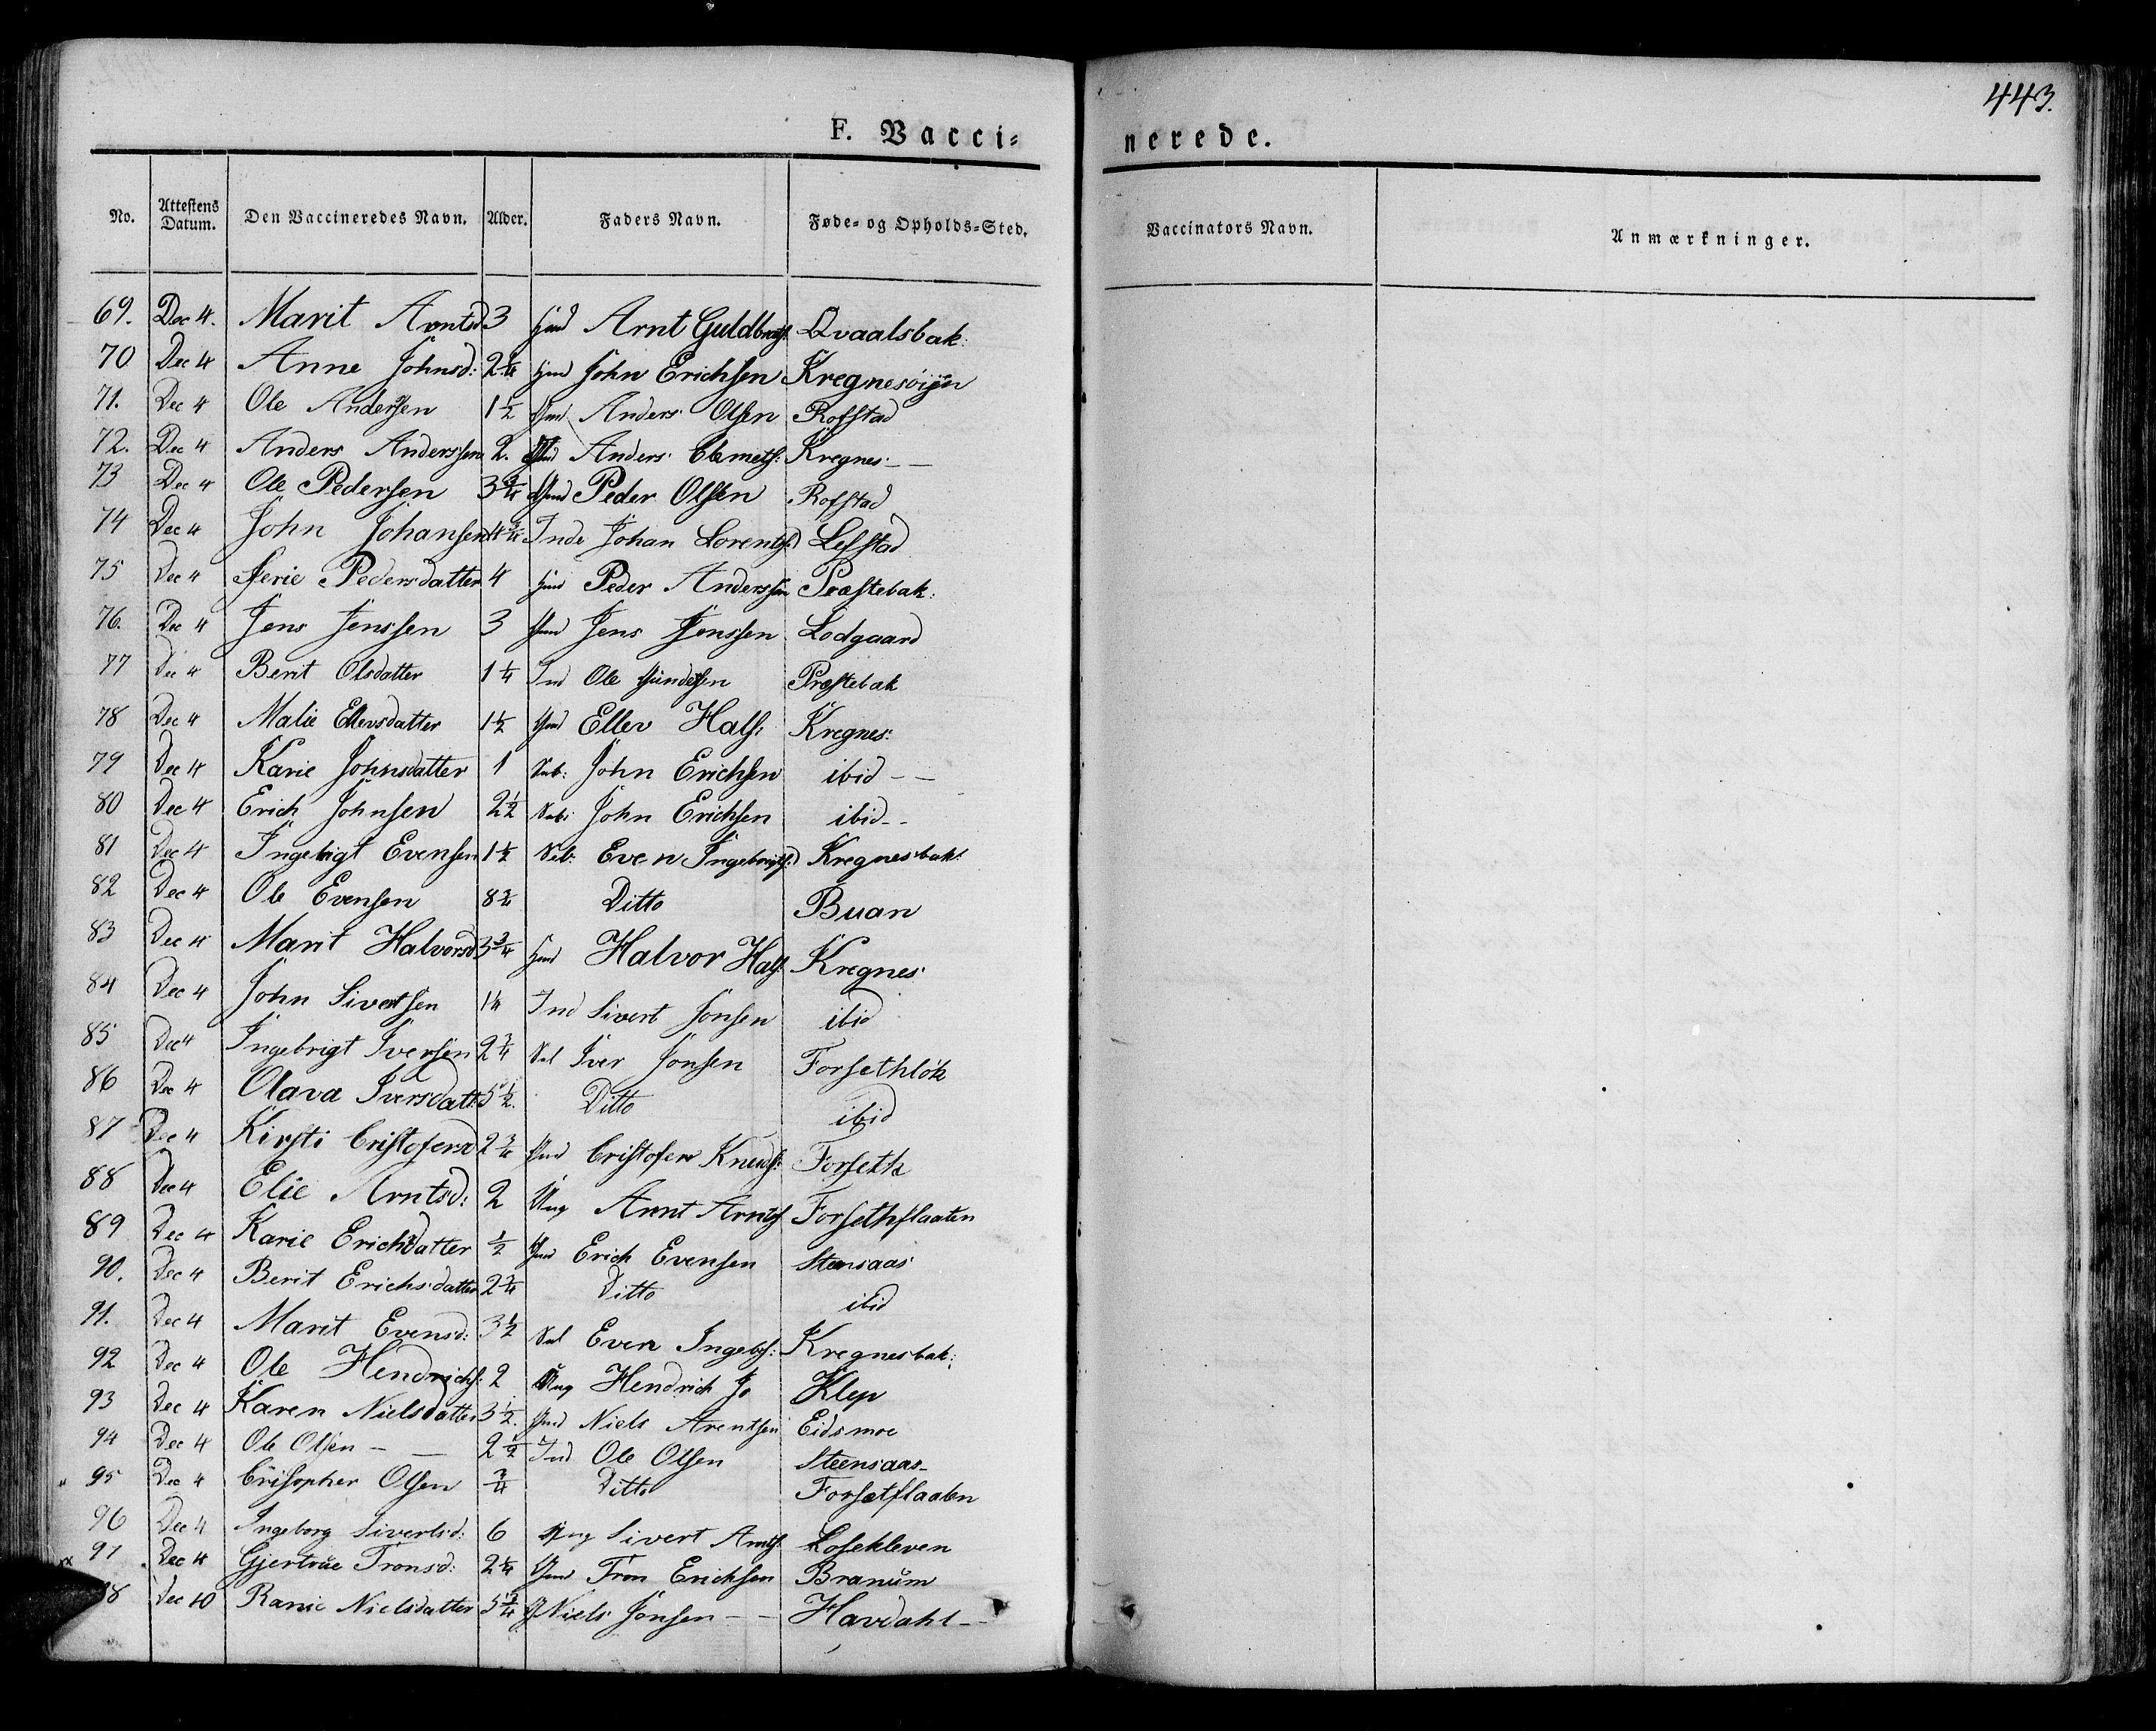 443.
F. Vacci-
nerede.
No. Attestens Datum. Den Vaccineredes Navn. Alder. Faders Navn. Føde- og Opholds-Sted. Vaccinators Navn. Anmærkninger.
69. Dec 4. Marit Arntsd 3 Arnt Guldbrands: Qvaalsbak:
70 Dec 4 Anne Johnsd: 2 1/4 John Erichsen Kregnesöijen
71. Dec 4 Ole Andersen 1 1/2 Anders Olsen Rofstad
72. Dec 4 Anders Anderssen 2. Anders Clemets: Kregnes
73 Dec 4 Ole Pedersen 3 3/4 Peder Olsen Rofstad
74 Dec 4 John Johansen 4 3/4 Inde Johan Lorents: Lefstad
75 Dec 4 Serie Pedersdatter 4 Peder Anderssen Præstebak:
76. Dec 4 Jens Jenssen 3 Jens Jenssen Lodgaard
77 Dec 4 Berit Olsdatter 1 1/4 Ind Ole Præstebak
78 Dec 4 Malie Ellevsdatter 1 1/2 Ellev Hals: Kregnes:
79 Dec 4 Karie Johnsdatter 1 John Erichsen ibid
80 Dec 4 Erich Johnsen 2 1/2 John Erichsen ibid
81 Dec 4 Ingebrigt Evensen 1 1/2 Even Ingebrigts: Kregnesbak:
82 Dec 4 Ole Evensen 8 3/4 Ditto Buan
83 Dec 4 Marit Halvorsd 3 3/4 Halvor Hals: Kregnes
84 Dec 4 John Sivertsen 1 1/4 Ind Sivert Jonsen ibid
85 Dec 4 Ingebrigt Iversen 2 3/4 Iver Jonsen Forsethlök
86 Dec 4 Olava Iversdatt: 5 1/2. Ditto ibid
87 Dec 4 Kirsti Cristofersd 2 3/4 Cristofer Knuds: Forseth
88 Dec 4 Elie Arntsd: 2 Ung Arnt Arnts: Forsethflaaten
89 Dec 4 Karie Erichsdatter 1/2 Erich Evensen Steensaas
90. Dec 4 Berit Erichsdatter 2 3/4 Ditto ibid
91. Dec 4 Marit Evensd: 3 1/2 Even Ingebs: Kregnesbak:
92 Dec 4 Ole Hendrichs: 2 Ung Hendrich Jo Klep
93 Dec 4 Karen Nielsdatter 3 1/2. Niels Arentsen Eidsmoe
94 Dec 4 Ole Olsen 2 1/2 Ind Ole Olsen Steensaas
95 Dec 4 Crisopher Olsen 3/4 Ditto Forsetflaaten
96 Dec 4 Ingeborg Sivertsd: 6 Ung Sivert Arnts: Losekleven
97 Dec 4 Gjertrue Tronsd: 2 1/4 Tron Erichsen Branum
98 Dec 10 Ranie Nielsdatter 5 3/4 Niels Jonsen Havdahl